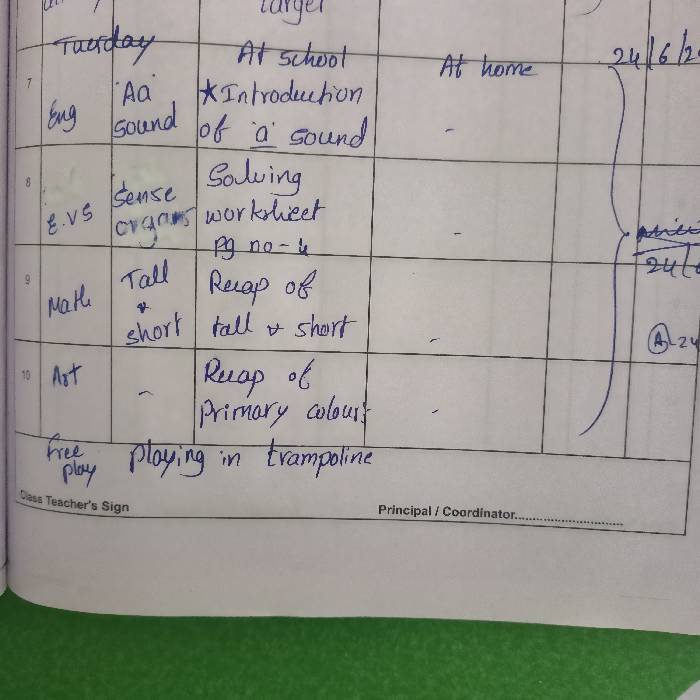 target
Tuesday At school At home 24/6/2
7 Eng Aa sound ★Introduction of a sound -
8 E.VS Sense organs Solving worksheet Pg no-4 -
9 Math Tall & short Recap of tall & short - 24/
A-24
10 Art - Recap of Primary colours -
free play playing in trampoline
Class Teacher's Sign Principal / Coordinator..............................